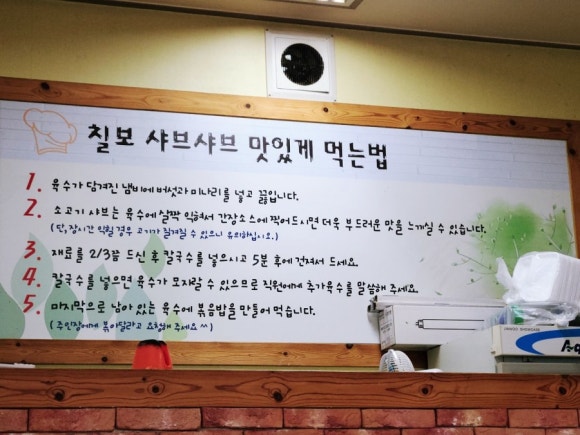 칠보 샤브샤브 맛있게 먹는법
1. 육수가 담겨진 냄비에 버섯과 미나리를 넣고 끓입니다.
2. 소고기 샤브는 육수에 살짝 익혀서 간장소스에 찍어드시면 더욱 부드러운 맛을 느끼실 수 있습니다.
(단, 장시간 익힐 경우 고기가 질겨질 수 있으니 유의하십시오.)
3. 재료를 2/3쯤 드신 후 칼국수를 넣으시고 5분 후에 건져서 드세요.
4. 칼국수를 넣으면 육수가 모자랄 수 있으므로 직원에게 추가육수를 말씀해 주세요.
5. 마지막으로 남아 있는 육수에 볶음밥을 만들어 먹습니다.
(주인장에게 볶아달라고 요청해 주세요 ^^)